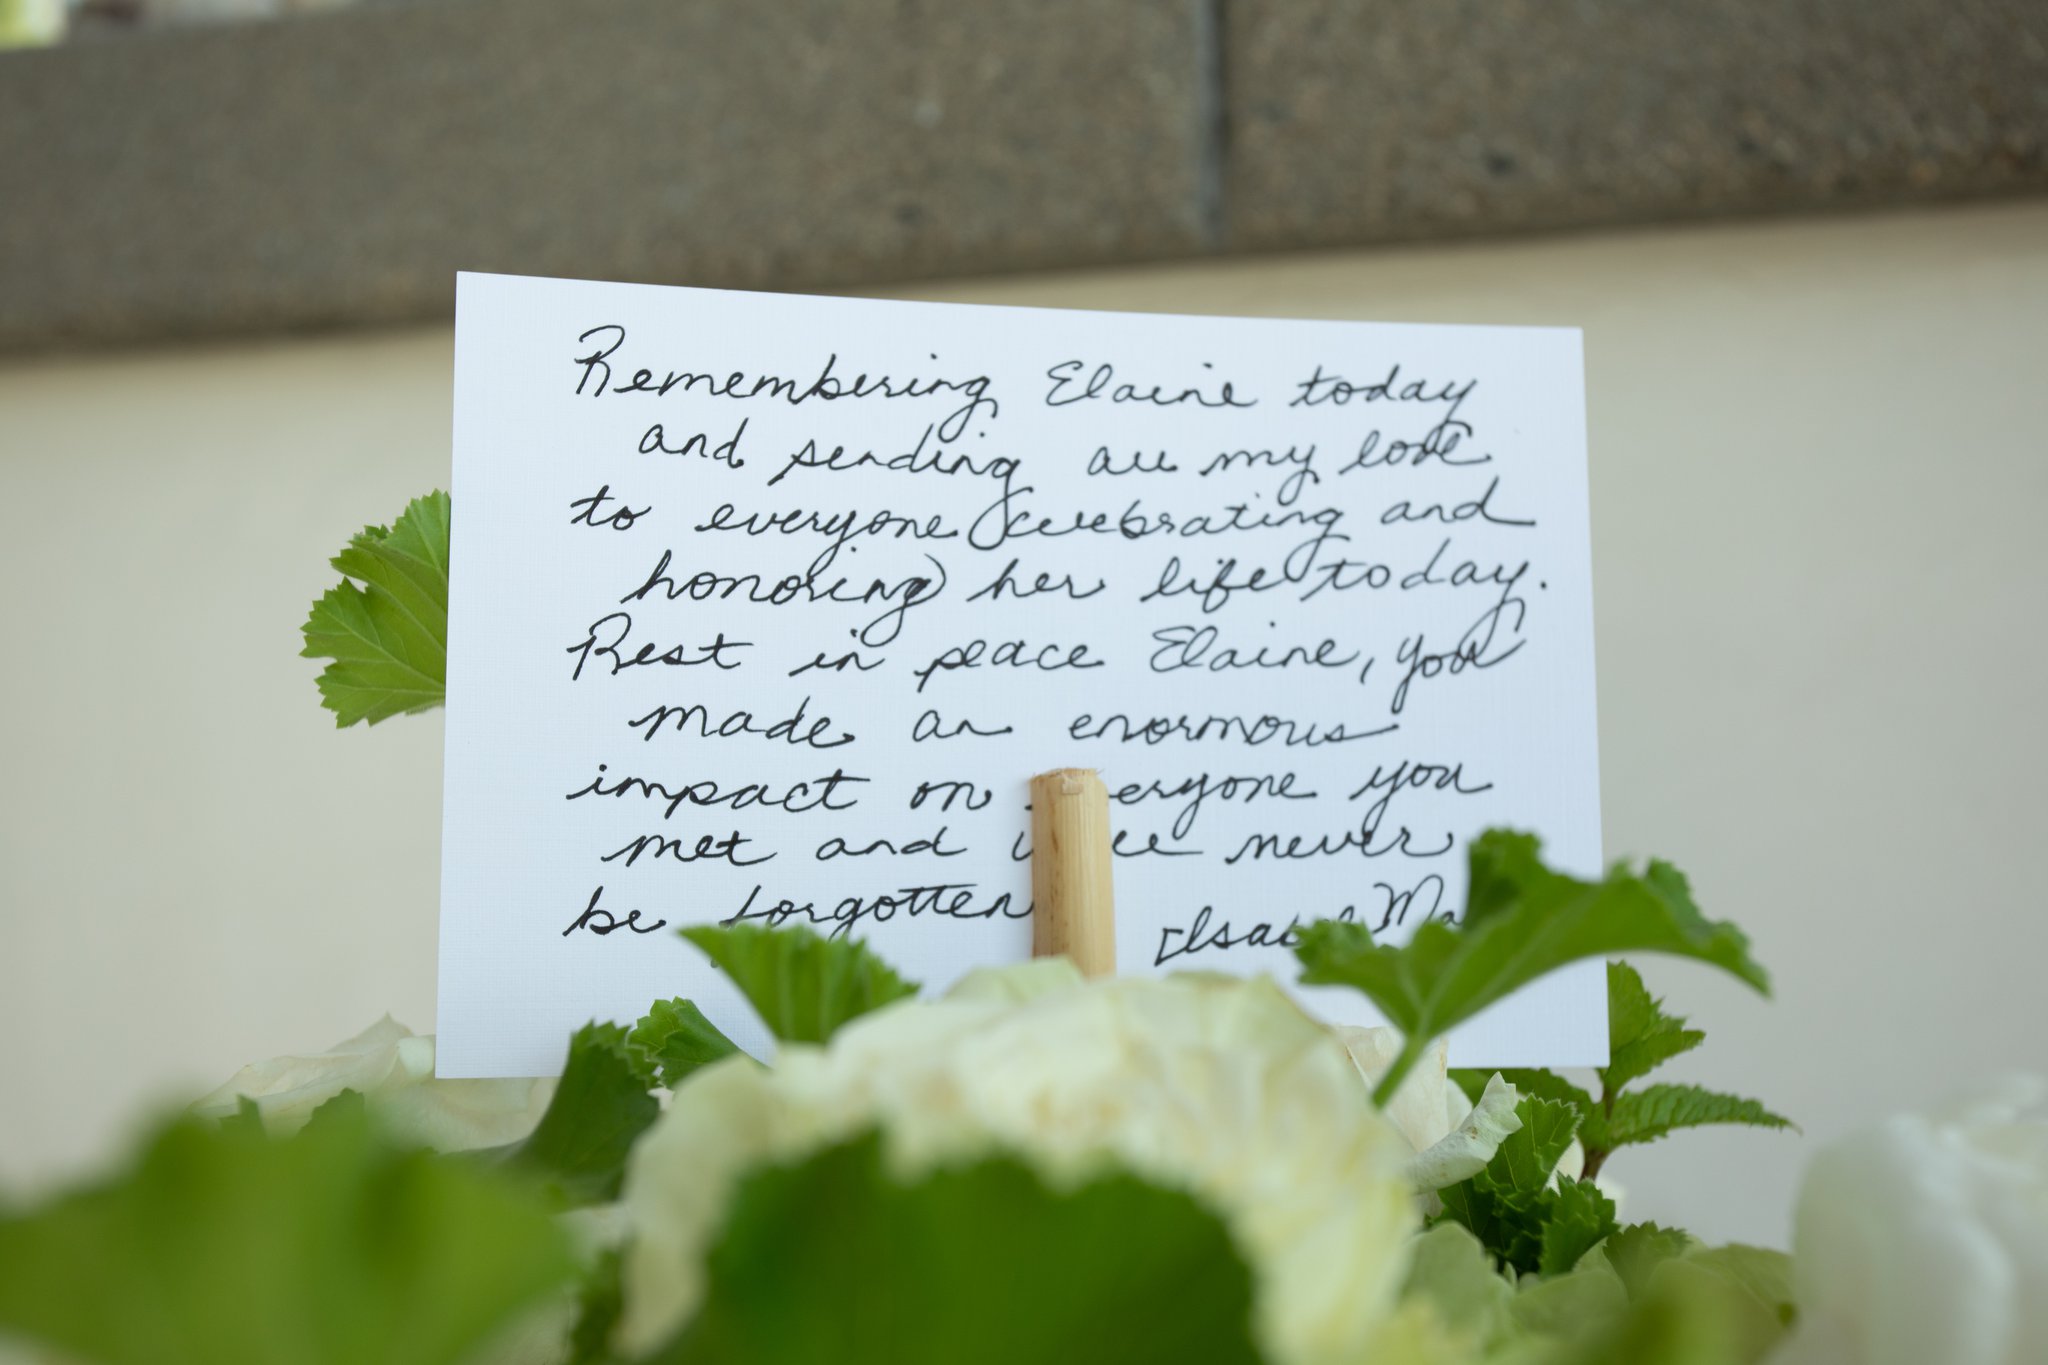 Remembering Elaine today
and sending all my love
to everyone (celebrating and
honoring) her life today.
Rest in peace Elaine, you
made an enormous
impact on everyone you
met and will never
be forgotten